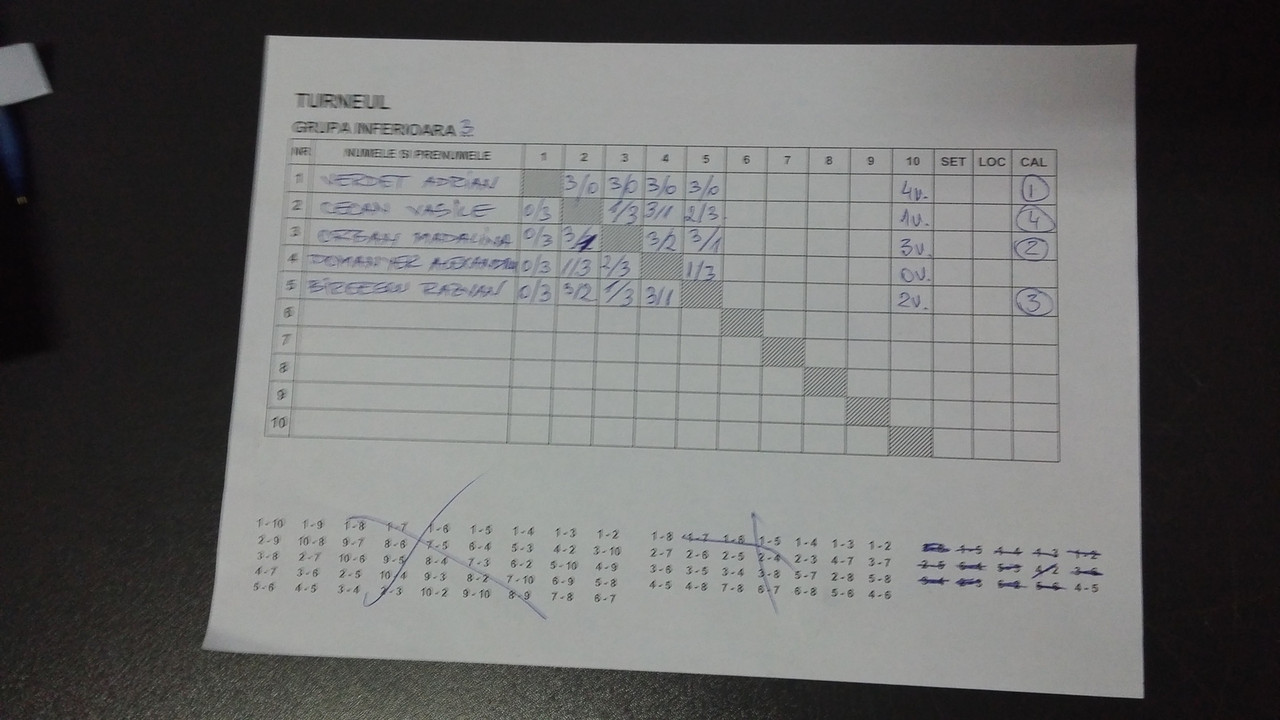 TURNEUL
GRUPA INFERIOARA 3
NR NUMELE SI PRENUMELE 1 2 3 4 5 6 7 8 9 10 SET LOC CAL
1 VERDET ADRIAN 3/0 3/0 3/0 3/0 4v. 1
2 VASILE 0/3 1/3 3/1 2/3 1v. 4
3 MADALINA 0/3 3/1 3/2 3/1 3v. 2
4 0/3 1/3 2/3 1/3 0v.
5 RAZVAN 0/3 3/2 1/3 3/1 2v. 3
6
7
8
9
10
1-10 1-9 1-8 1-7 1-6 1-5 1-4 1-3 1-2 1-8 1-7 1-6 1-5 1-4 1-3 1-2 1-5 1-4 1-3 1-2
2-9 10-8 9-7 8-6 7-5 6-4 5-3 4-2 3-10 2-7 2-6 2-5 2-4 2-3 4-7 3-7 2-5
3-8 2-7 10-6 9-5 8-4 7-3 6-2 5-10 4-9 3-6 3-5 3-4 3-8 5-7 2-8 5-8
4-7 3-6 2-5 10-4 9-3 8-2 7-10 6-9 5-8 4-5 4-8 7-8 6-7 6-8 5-6 4-6 4-5
5-6 4-5 3-4 2-3 10-2 9-10 8-9 7-8 6-7